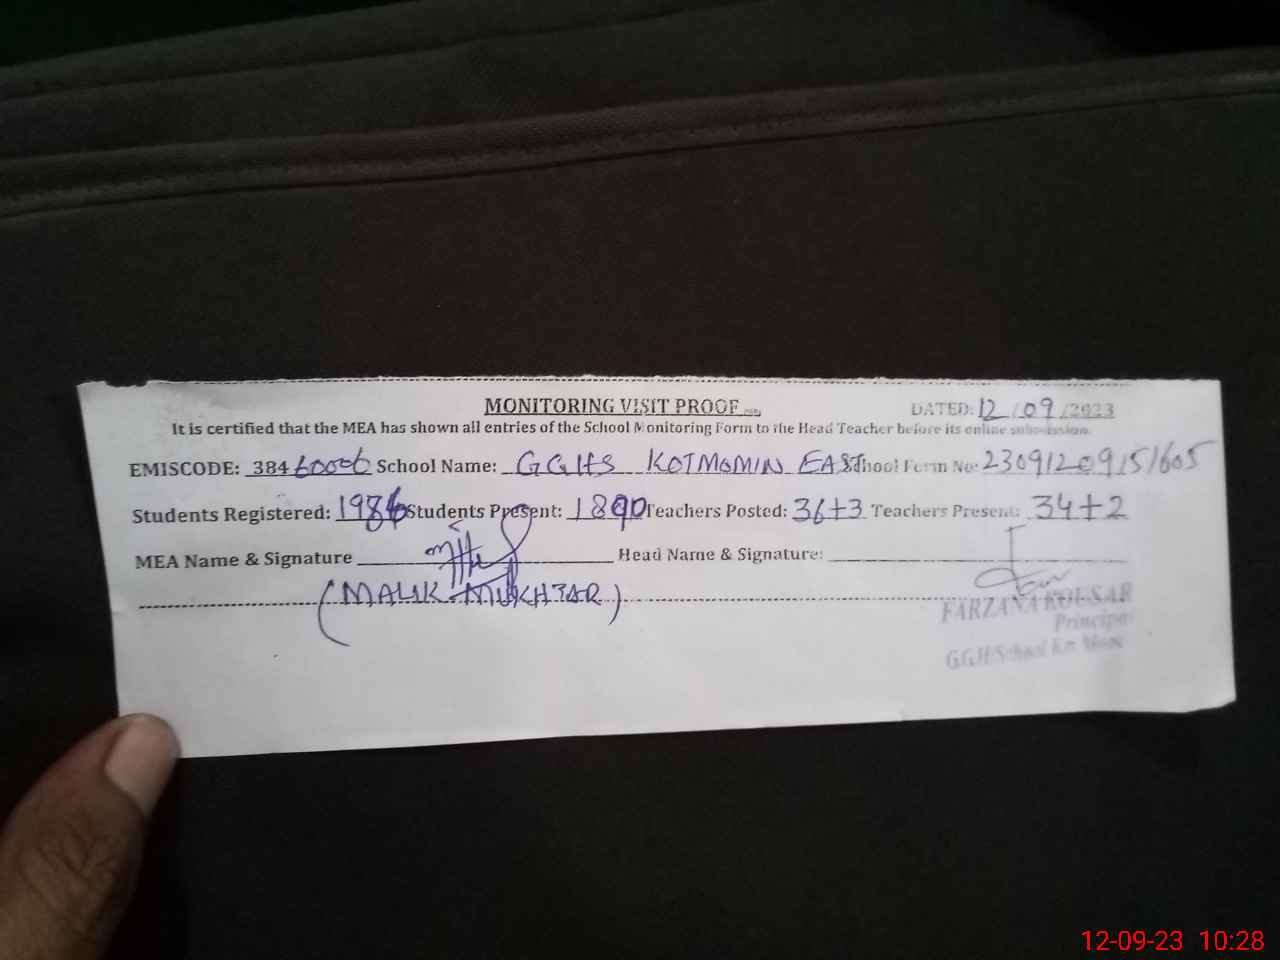 MONITORING VISIT PROOF
DATED: 12/09/2023
It is certified that the MEA has shown all entries of the School Monitoring Form to the Head Teacher before its online submission.
EMISCODE: 38460006 School Name: GGHS KOTMOMIN EAST School Form No: 23091209151605
Students Registered: 1986 Students Present: 1890 Teachers Posted: 36+3 Teachers Present: 34+2
MEA Name & Signature Head Name & Signature:
(MALIK MUKHTAR)
FARZANA KOUSAR
Principal
G.G.H/School Kot Mom
12-09-23 10:28